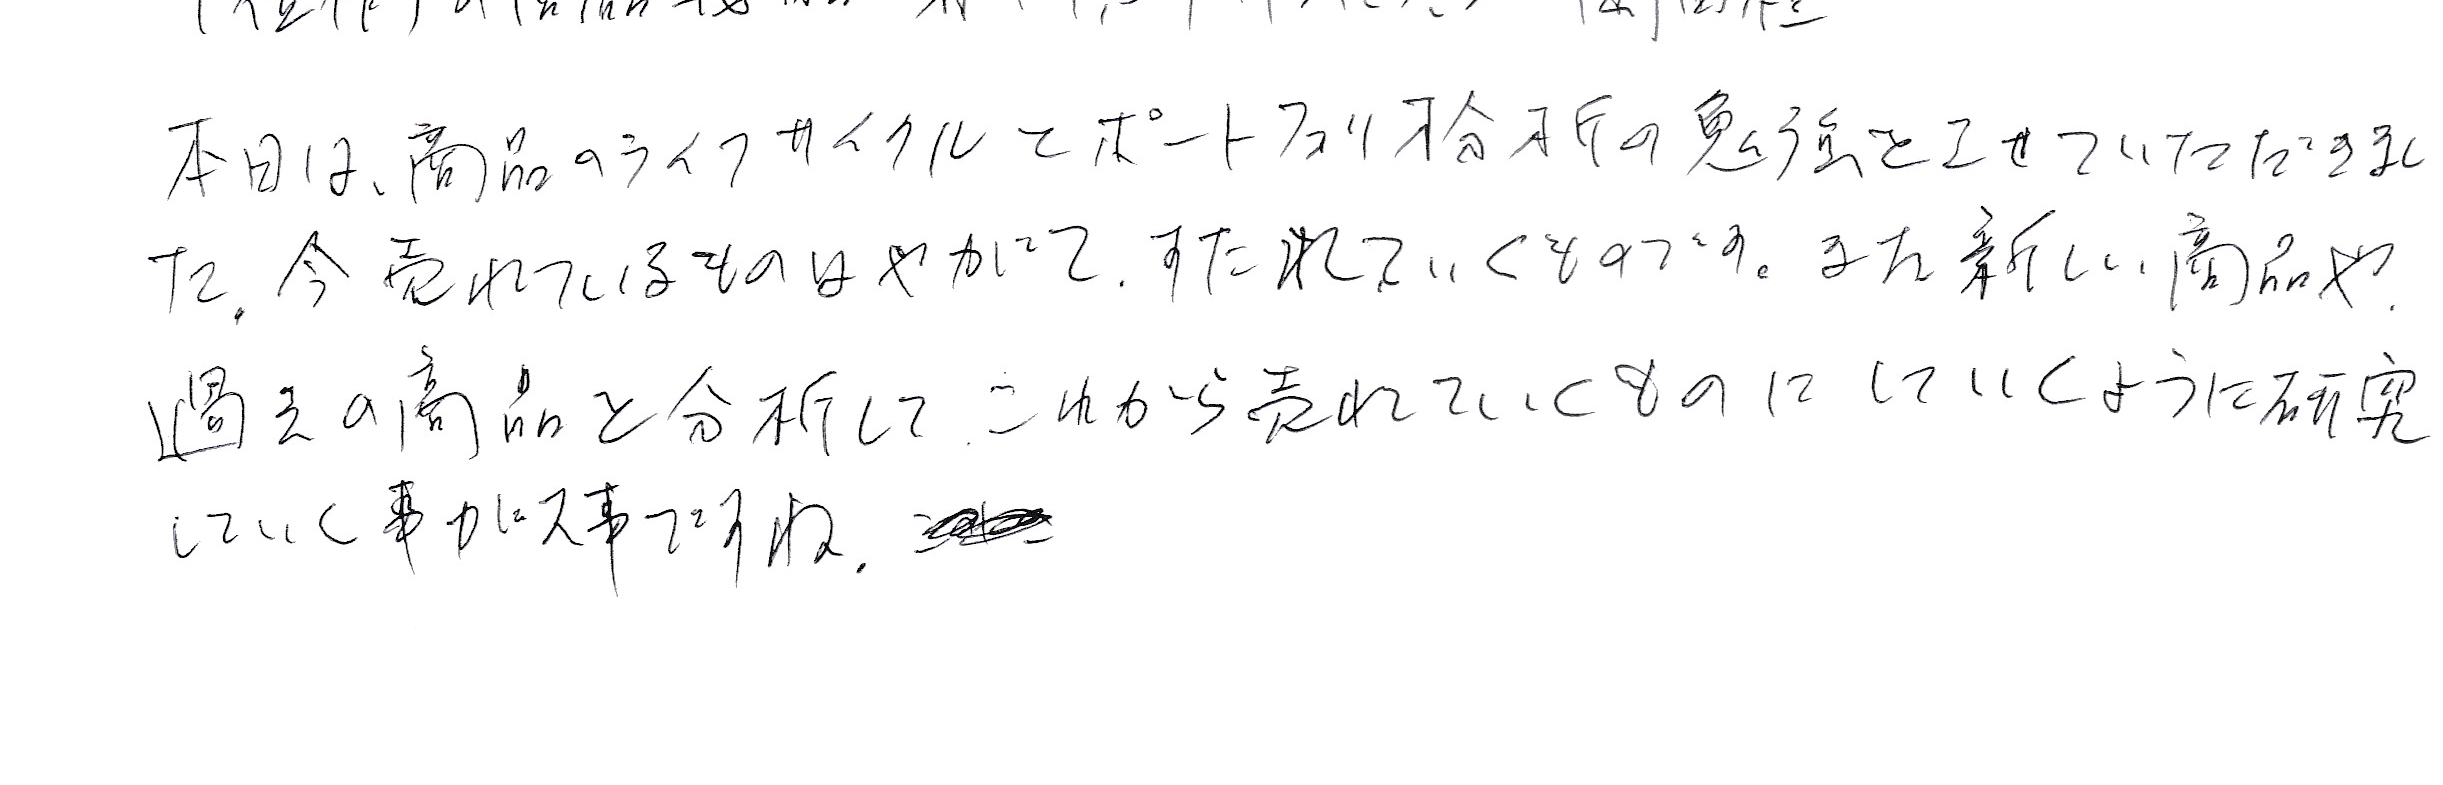 本日は、商品のライフサイクルとポートフォリオ分析の勉強をさせていただきまし
た。今売れているものはやがて、すたれていくものです。また新しい商品や、
過去の商品を分析して、これから売れていくものにしていくように研究
していく事が大事ですね。